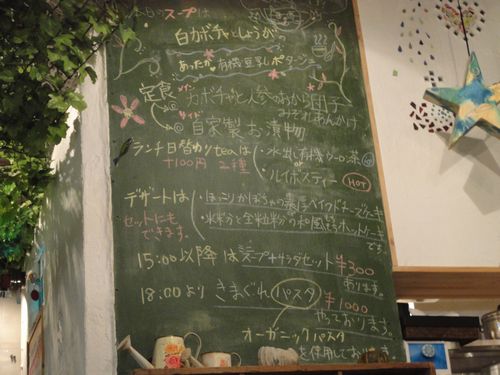 スープは、
白カボチャとしょうがの
あったか有機豆乳ポタージュ
定食
メイン カボチャと人参のおから団子
みぞれあんかけ
サイド 自家製お漬物
ランチ日替わりteaは
+100円 2種
・水出し有機ウーロン茶
or
・ルイボスティー HOT
デザートは
セットにも
できます。
・ほっこりかぼちゃの濃厚ベイクドチーズケーキ
・米粉と全粒粉の和風ホットケーキ
です。
15:00以降はスープ+サラダセット ¥300
あります。
18:00より きまぐれパスタ ¥1000
やっております。
オーガニックパスタ
を使用しており